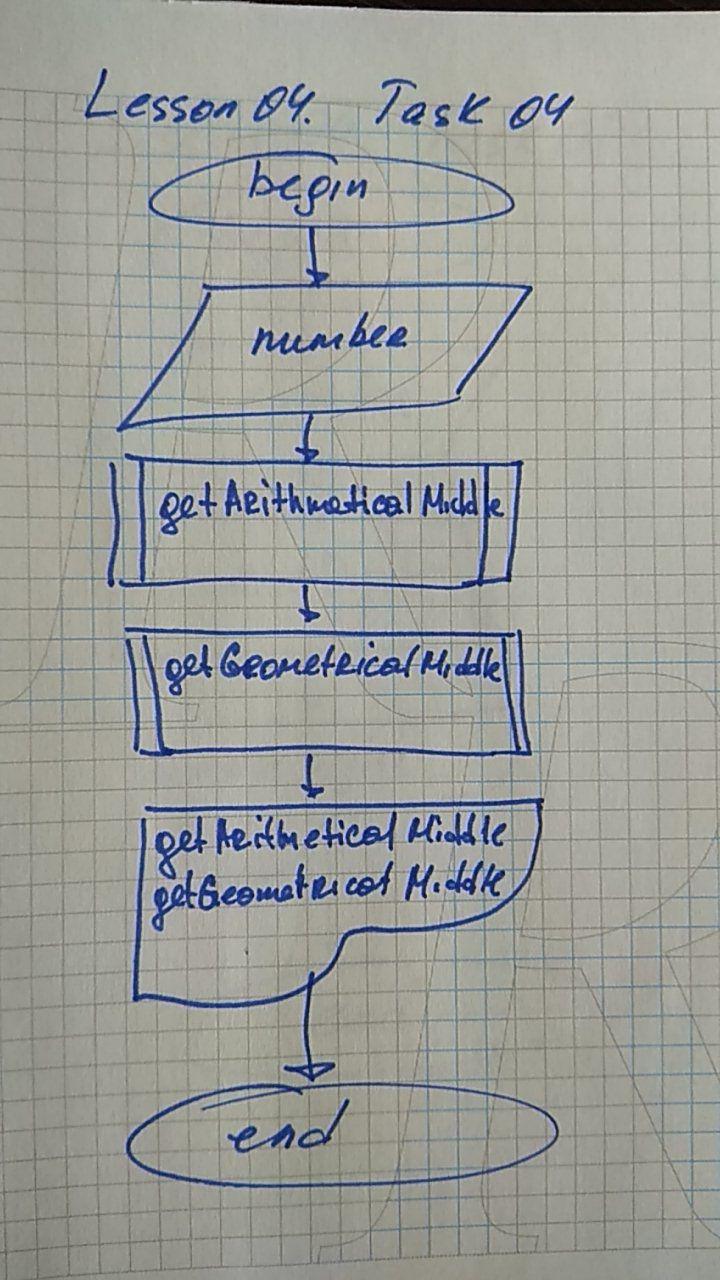 Lesson 04. Task 04
begin
number
getArithmatical Middle
getGeometrical Middle
getArithmetical Middle
getGeometrical Middle
end